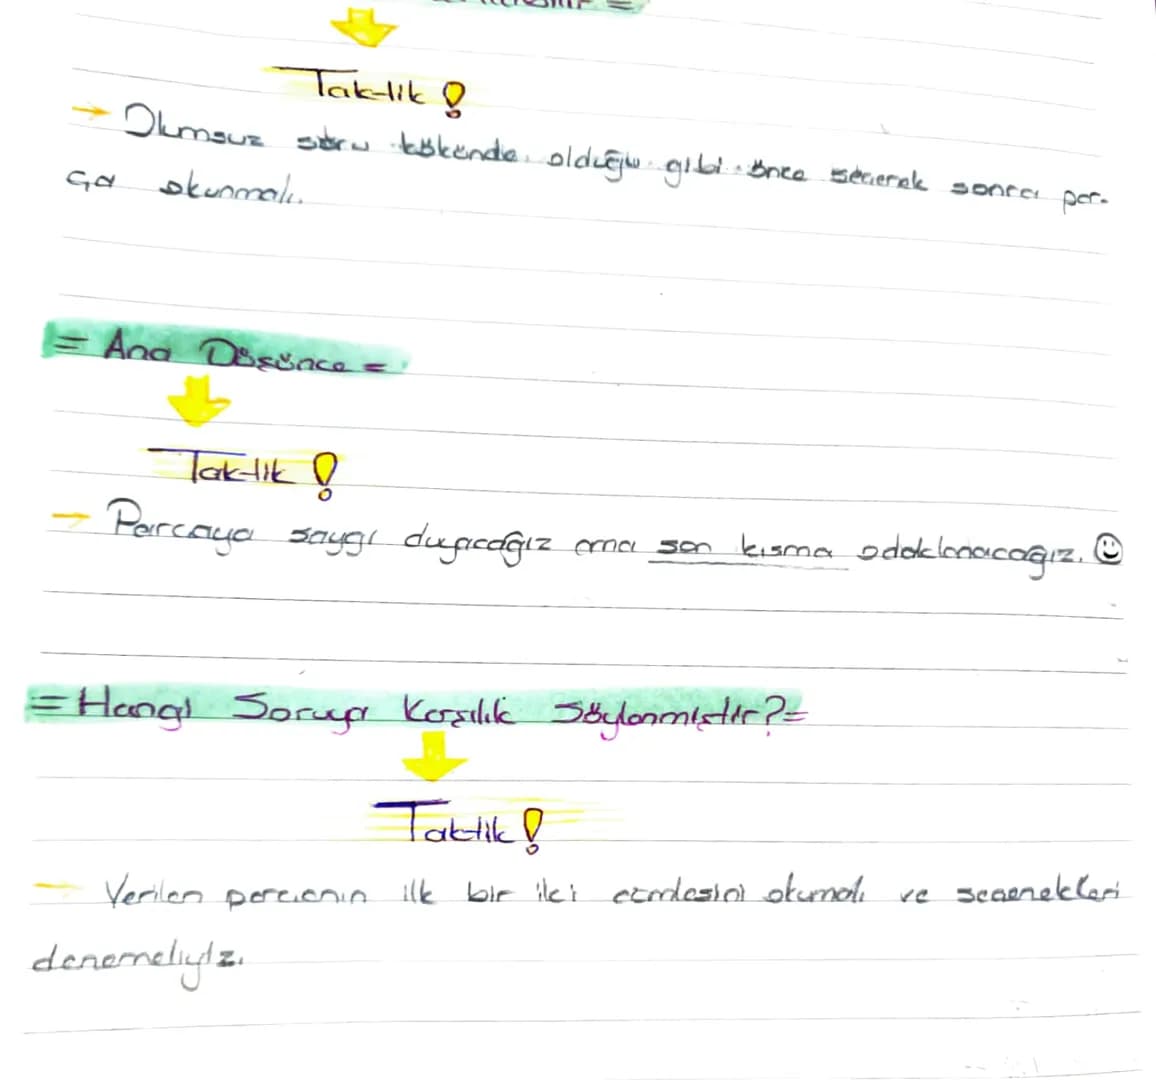 Taktik!
→ Olumsuz soru kökünde olduğu gibi önce seçenek sonra par-
ça okunmalı.
= Ana Düşünce =
Taktik!
→ Parçaya saygı duyacağız ama son kısma odaklanacağız. ☺
= Hangi Soruya Karşılık Söylenmiştir? =
Taktik!
– Verilen parçanın ilk bir iki cümlesini okumalı ve seçenekleri
denemeliyiz.